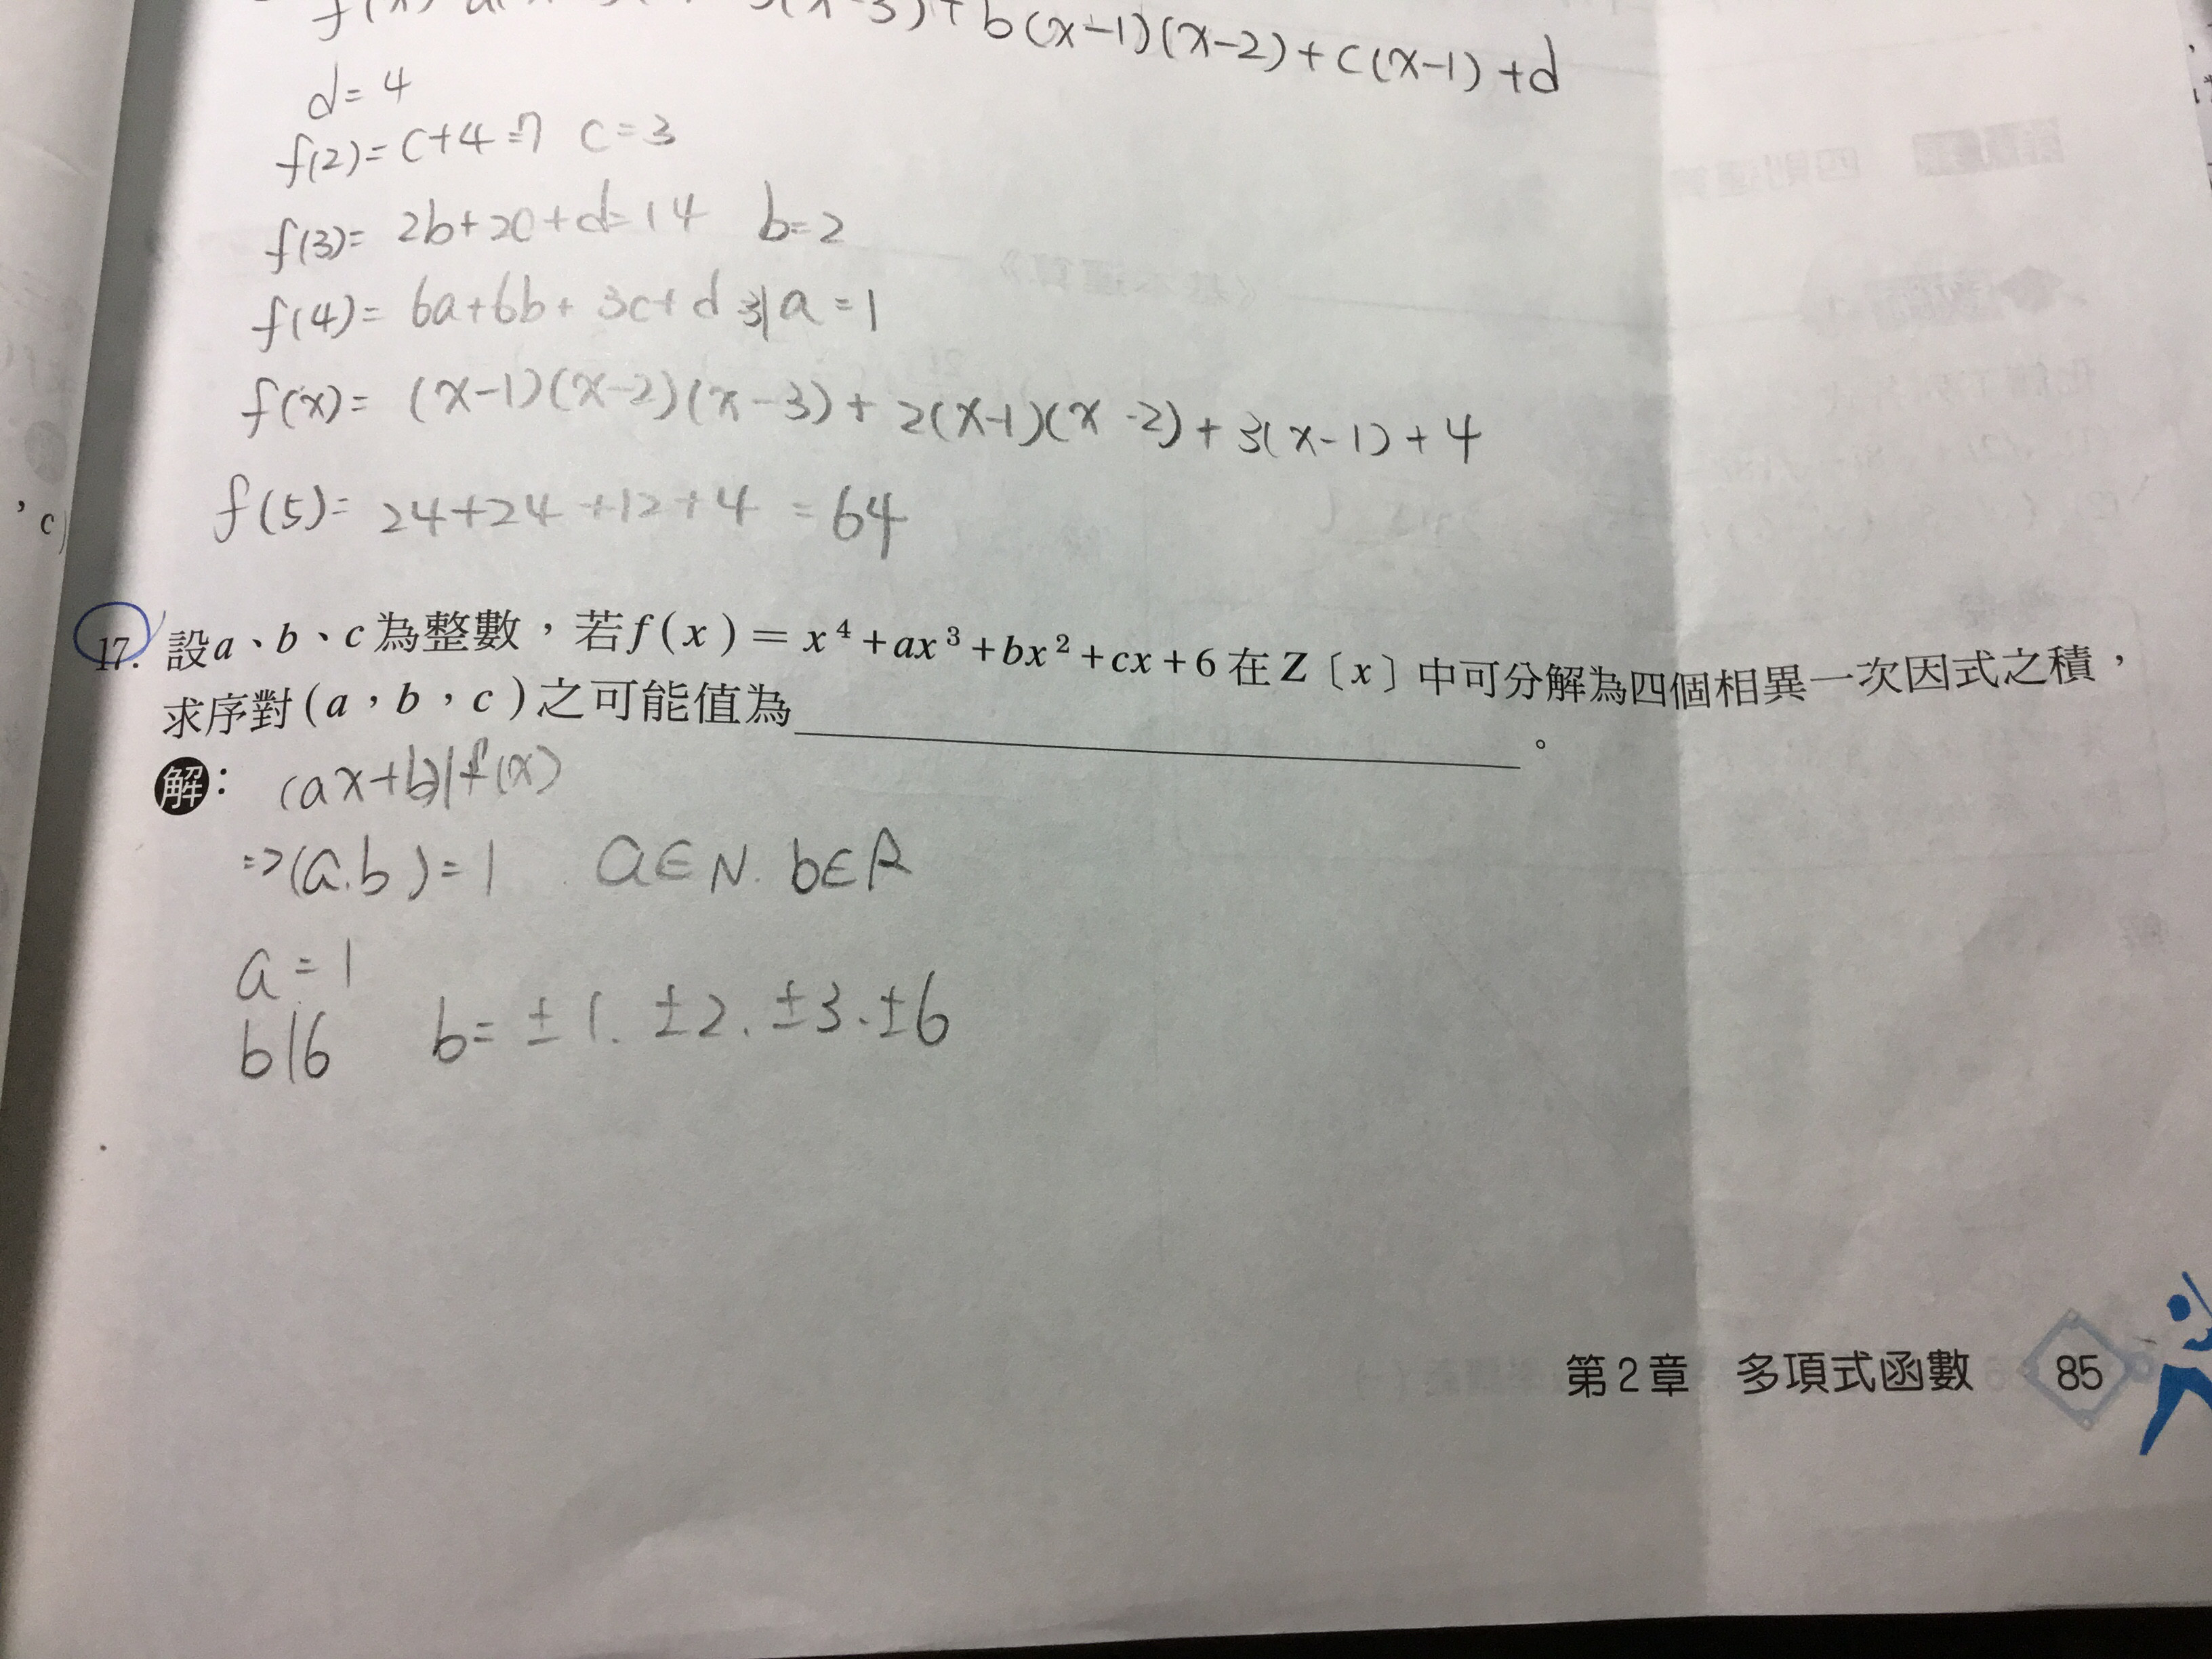 f(x) a(x (x-3)+b(x-1)(x-2)+c(x-1)+d
d=4
f(2)=c+4=7 c=3
f(3)= 2b+2c+d=14 b=2
f(4)= 6a+6b+3c+d=31 a=1
f(x)= (x-1)(x-2)(x-3)+2(x-1)(x-2)+3(x-1)+4
f(5)= 24+24+12+4=64
, c)
17. 設a、b、c為整數，若f(x)=x⁴+ax³+bx²+cx+6在Z〔x〕中可分解為四個相異一次因式之積，
求序對(a，b，c)之可能值為__________。
解： (ax+b)|f(x)
=>(a.b)=1 a∈N. b∈R
a=1
b|6 b=±1. ±2. ±3. ±6
第2章 多項式函數 85